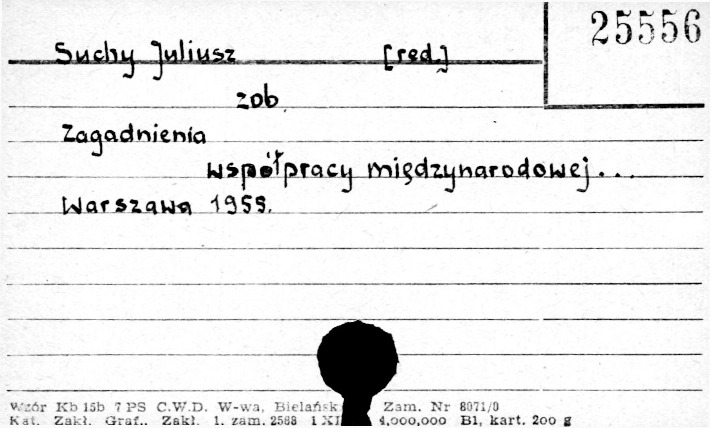 25556
Suchy Juliusz [red.]
zob.
Zagadnienia
współpracy międzynarodowej...
Warszawa 1959.
Wzór Kb 15b 7 PS C.W.D. W-wa, Bielańsk Zam. Nr 8071/0
Kat. Zakł. Graf.. Zakł. 1. zam. 2588 i XI 4,000,000 B1, kart. 200 g